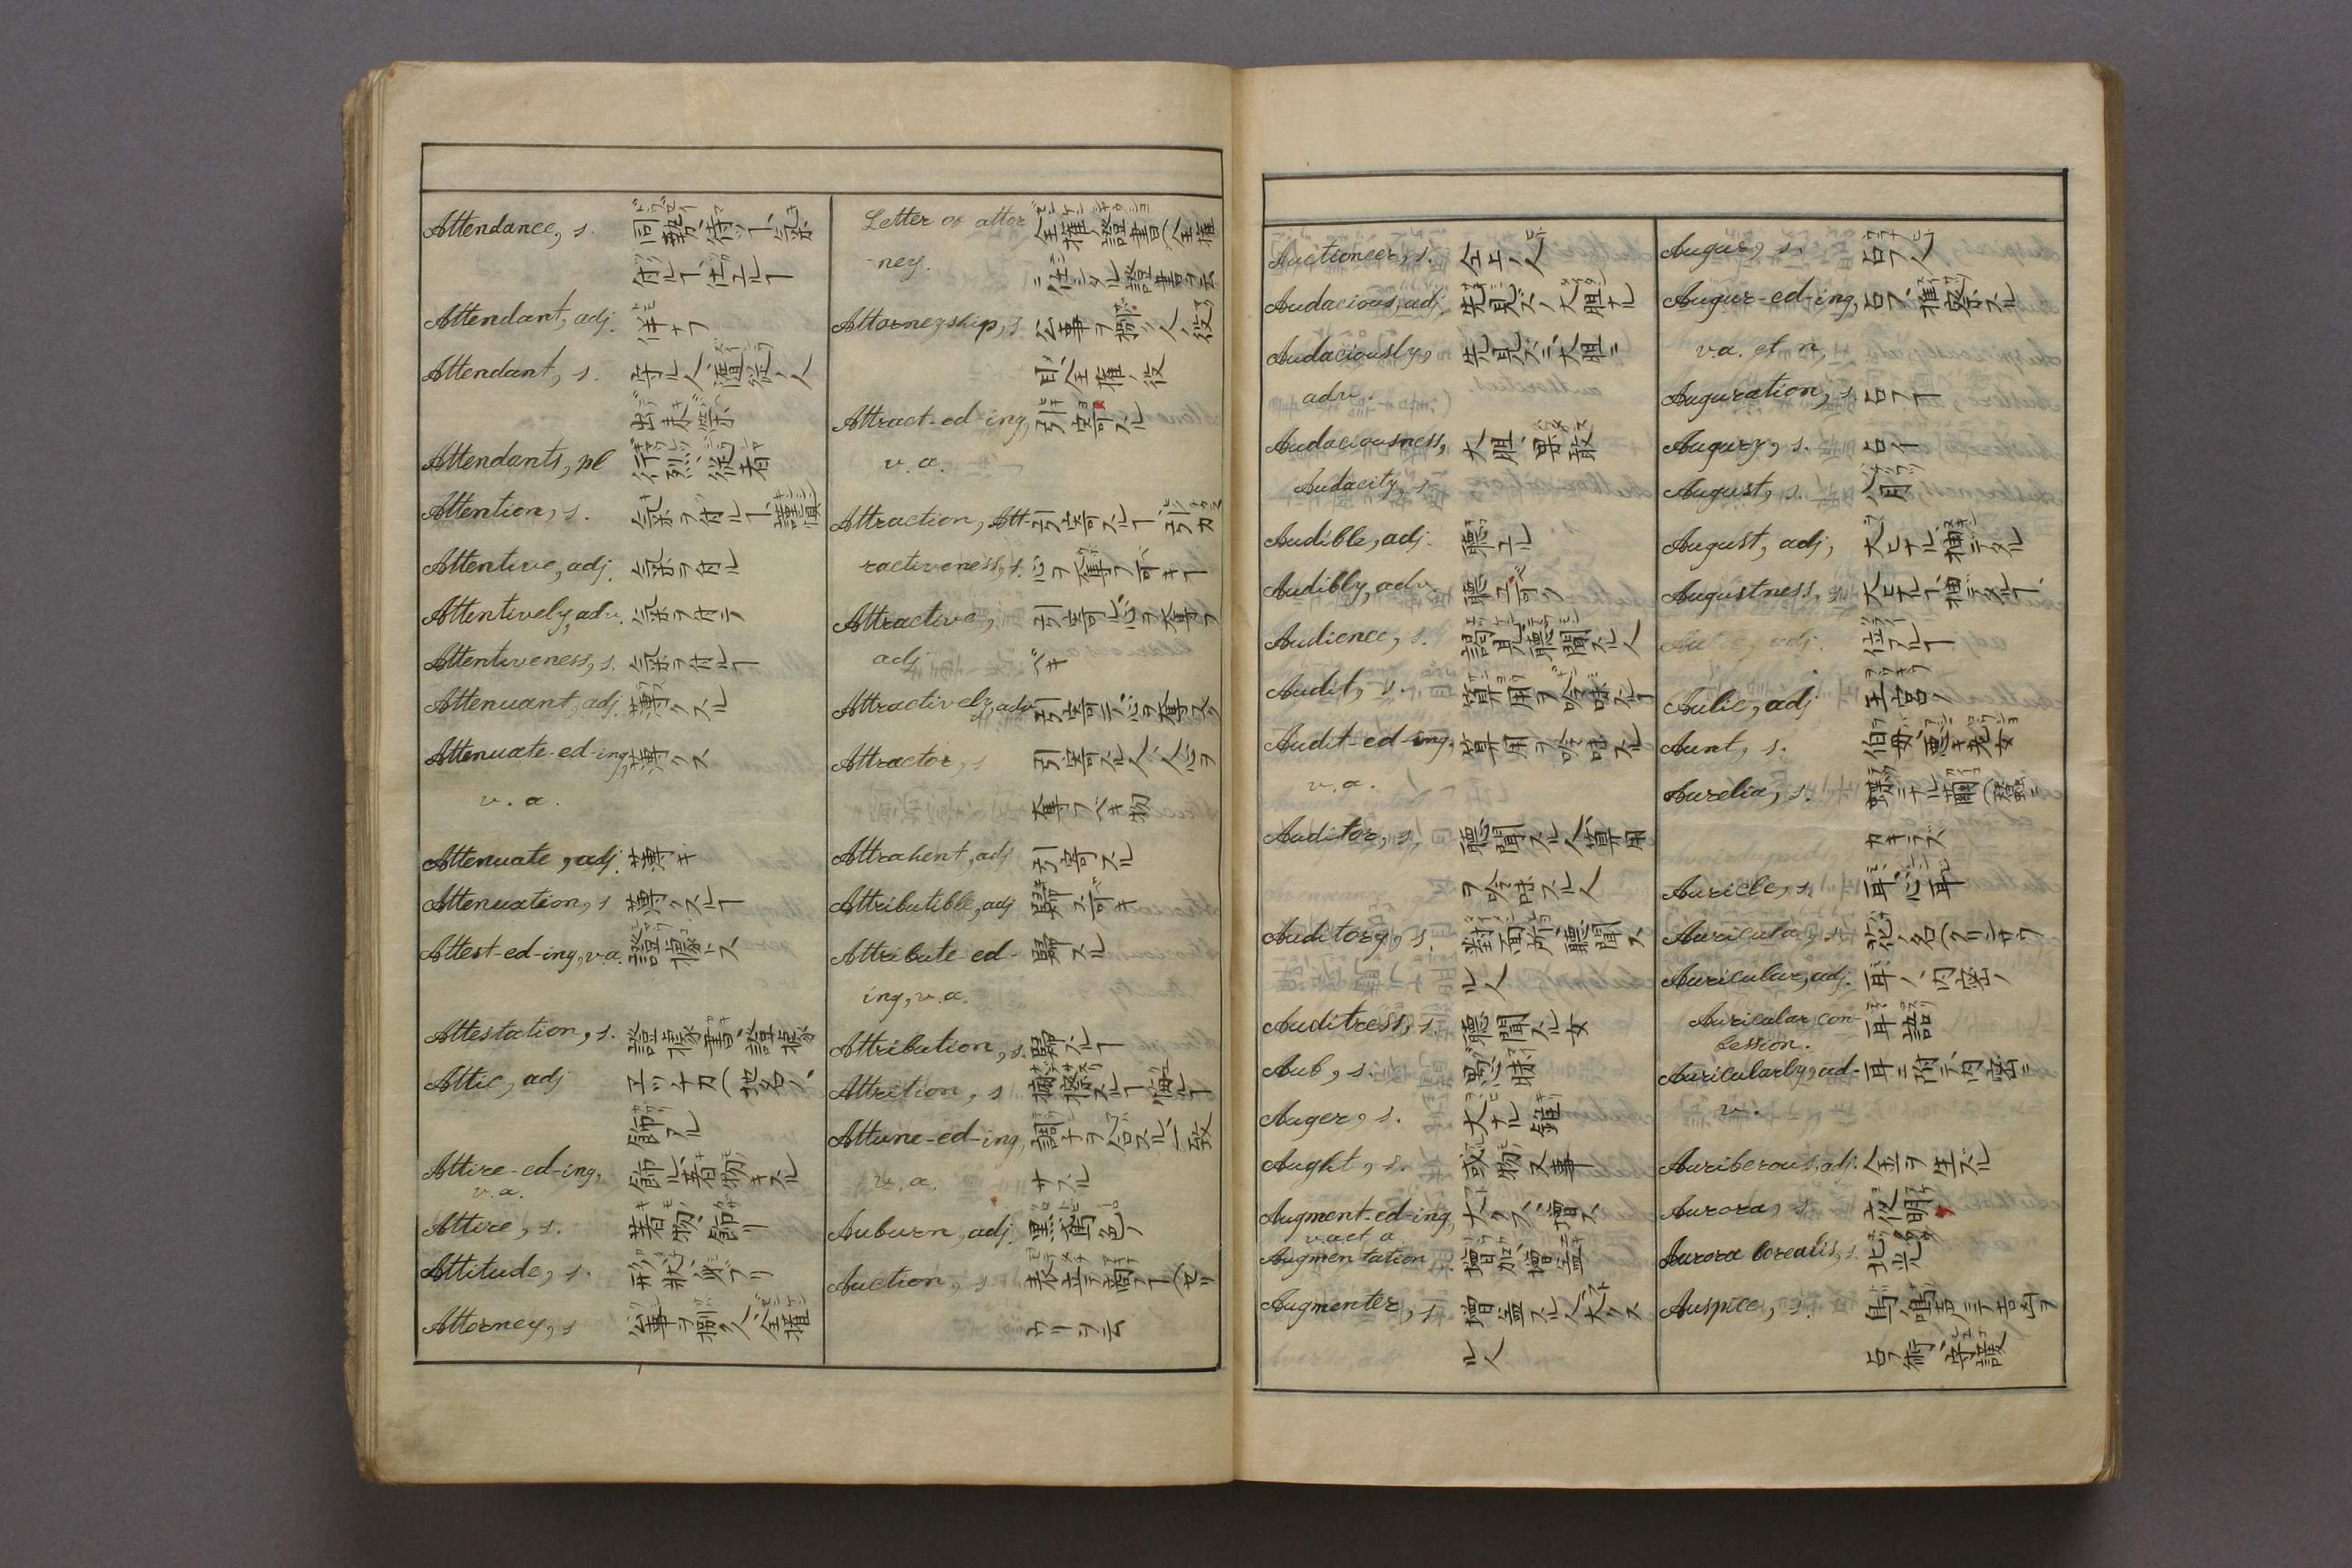 Attendance, s. 同勢、待ツヿ、氣ヲ
付ルヿ、仕エルヿ
Attendant, adj. 伴ナフ
Attendant, s. 守ル人、隨從ノ人
出来
Attendants, pl 行烈、從者
Attention, s. 氣ヲ付ルヿ、謹慎
Attentive, adj. 氣ヲ付ル
Attentively, adv. 氣ヲ付テ
Attentiveness, s. 氣ヲ付ルヿ
Attenuant, adj. 薄クスル
Attenuate-ed-ing, 薄クス
v. a.
Attenuate, adj. 薄キ
Attenuation, s 薄クスルヿ
Attest-ed-ing, v.a. 證據ス
Attestation, s. 證據書、證據
Attic, adj
飾アル
Attire-ed-ing, 飾ル、着物キスル
v.a.
Attire, s. 着物、飾リ
Attitude, s. 形状、身ブリ
Attorney, s 公事ヲ捌ク人、全權
Letter of attor 全權ノ證書(全權
-ney. ニ任シタル證書ヲ云
Attorneyship, s 公事ヲ捌ク人ノ役
全權ノ役
Attract-ed-ing, 引寄スル
v. a.
Attraction, Att- 引寄スルヿ、引力
ractiveness, s. 心ヲ奪フ可キヿ
Attractive, 引寄ル、心ヲ奪フ
adj ベキ
Attractively, adv 引寄テ、心ヲ奪フ
Attractor, s 引寄スル人、人心ヲ
奪フベキ物
Attrahent, adj 引寄スル
Attributible, adj 歸ス可キ
Attribute-ed- 歸スル
ing, v.a.
Attribution, s. 歸スルヿ
Attrition, s
Attune-ed-ing, 調子ヲ合スル、一致
v. a. サスル
Auburn, adj. 黒鳶色ノ
Auction, s 表立テ商フヿ(セリ
ウリヲ云
Auctioneer, s. 仝上ノ人
Audacious, adj. 先見ズノ、大胆ナル
Audaciously, 先見ズニ、大胆ニ
adv.
Audaciousness, 大胆、果敢
Audacity, s.
Audible, adj. 聴エル
Audibly, adv. 聴エ可ク
Audience, s. 謁見、聴聞スル人
Audit, s. 算用ヲ吟味スルヿ
Audit-ed-ing, 算用ヲ吟味スル
v. a.
Auditor, s. 聴聞スル人、算用
ヲ吟味スル人
Auditory, s. 對面所、聽聞ス
ル人
Auditress, s. 聽聞スル女
Auf, s.
Auger, s. 大ナル錐
Aught, s. 或物、又事
Augment-ed-ing, 大クス、増ス
v.a et n.
Augmentation 増加、増益
Augmenter, s. 増益スル人、大クス
ル人
Augur, s. 占フ人
Augur-ed-ing, 占フ、推察スル
va. et n.
Auguration, s. 占フヿ
Augury, s. 占ヿ
August, s. 八月
August, adj, 大ヒナル、抽テタル
Augustness, s 大ヒナルヿ、抽テタルヿ、
Aulic, adj. 位アルヿ
Aulic, adj 王宮ノ
Aunt, s. 伯母、悪キ老女
Aurelia, s.
カギラズ
Auricle, s. 耳、心耳
Auricula, s. 花ノ名
Auricular, adj. 耳ノ、内密ノ
Auricular con- 耳語
fession.
Auricularly, ad- 耳ニ附テ、内密ニ
v.
Auriferous, adj. 金ヲ生ズル
Aurora, s 夜明ケ
Aurora borealis, s. 北光
Auspice, s. 鳥ノ鳴声ニテ吉凶ヲ
占フ術、守護